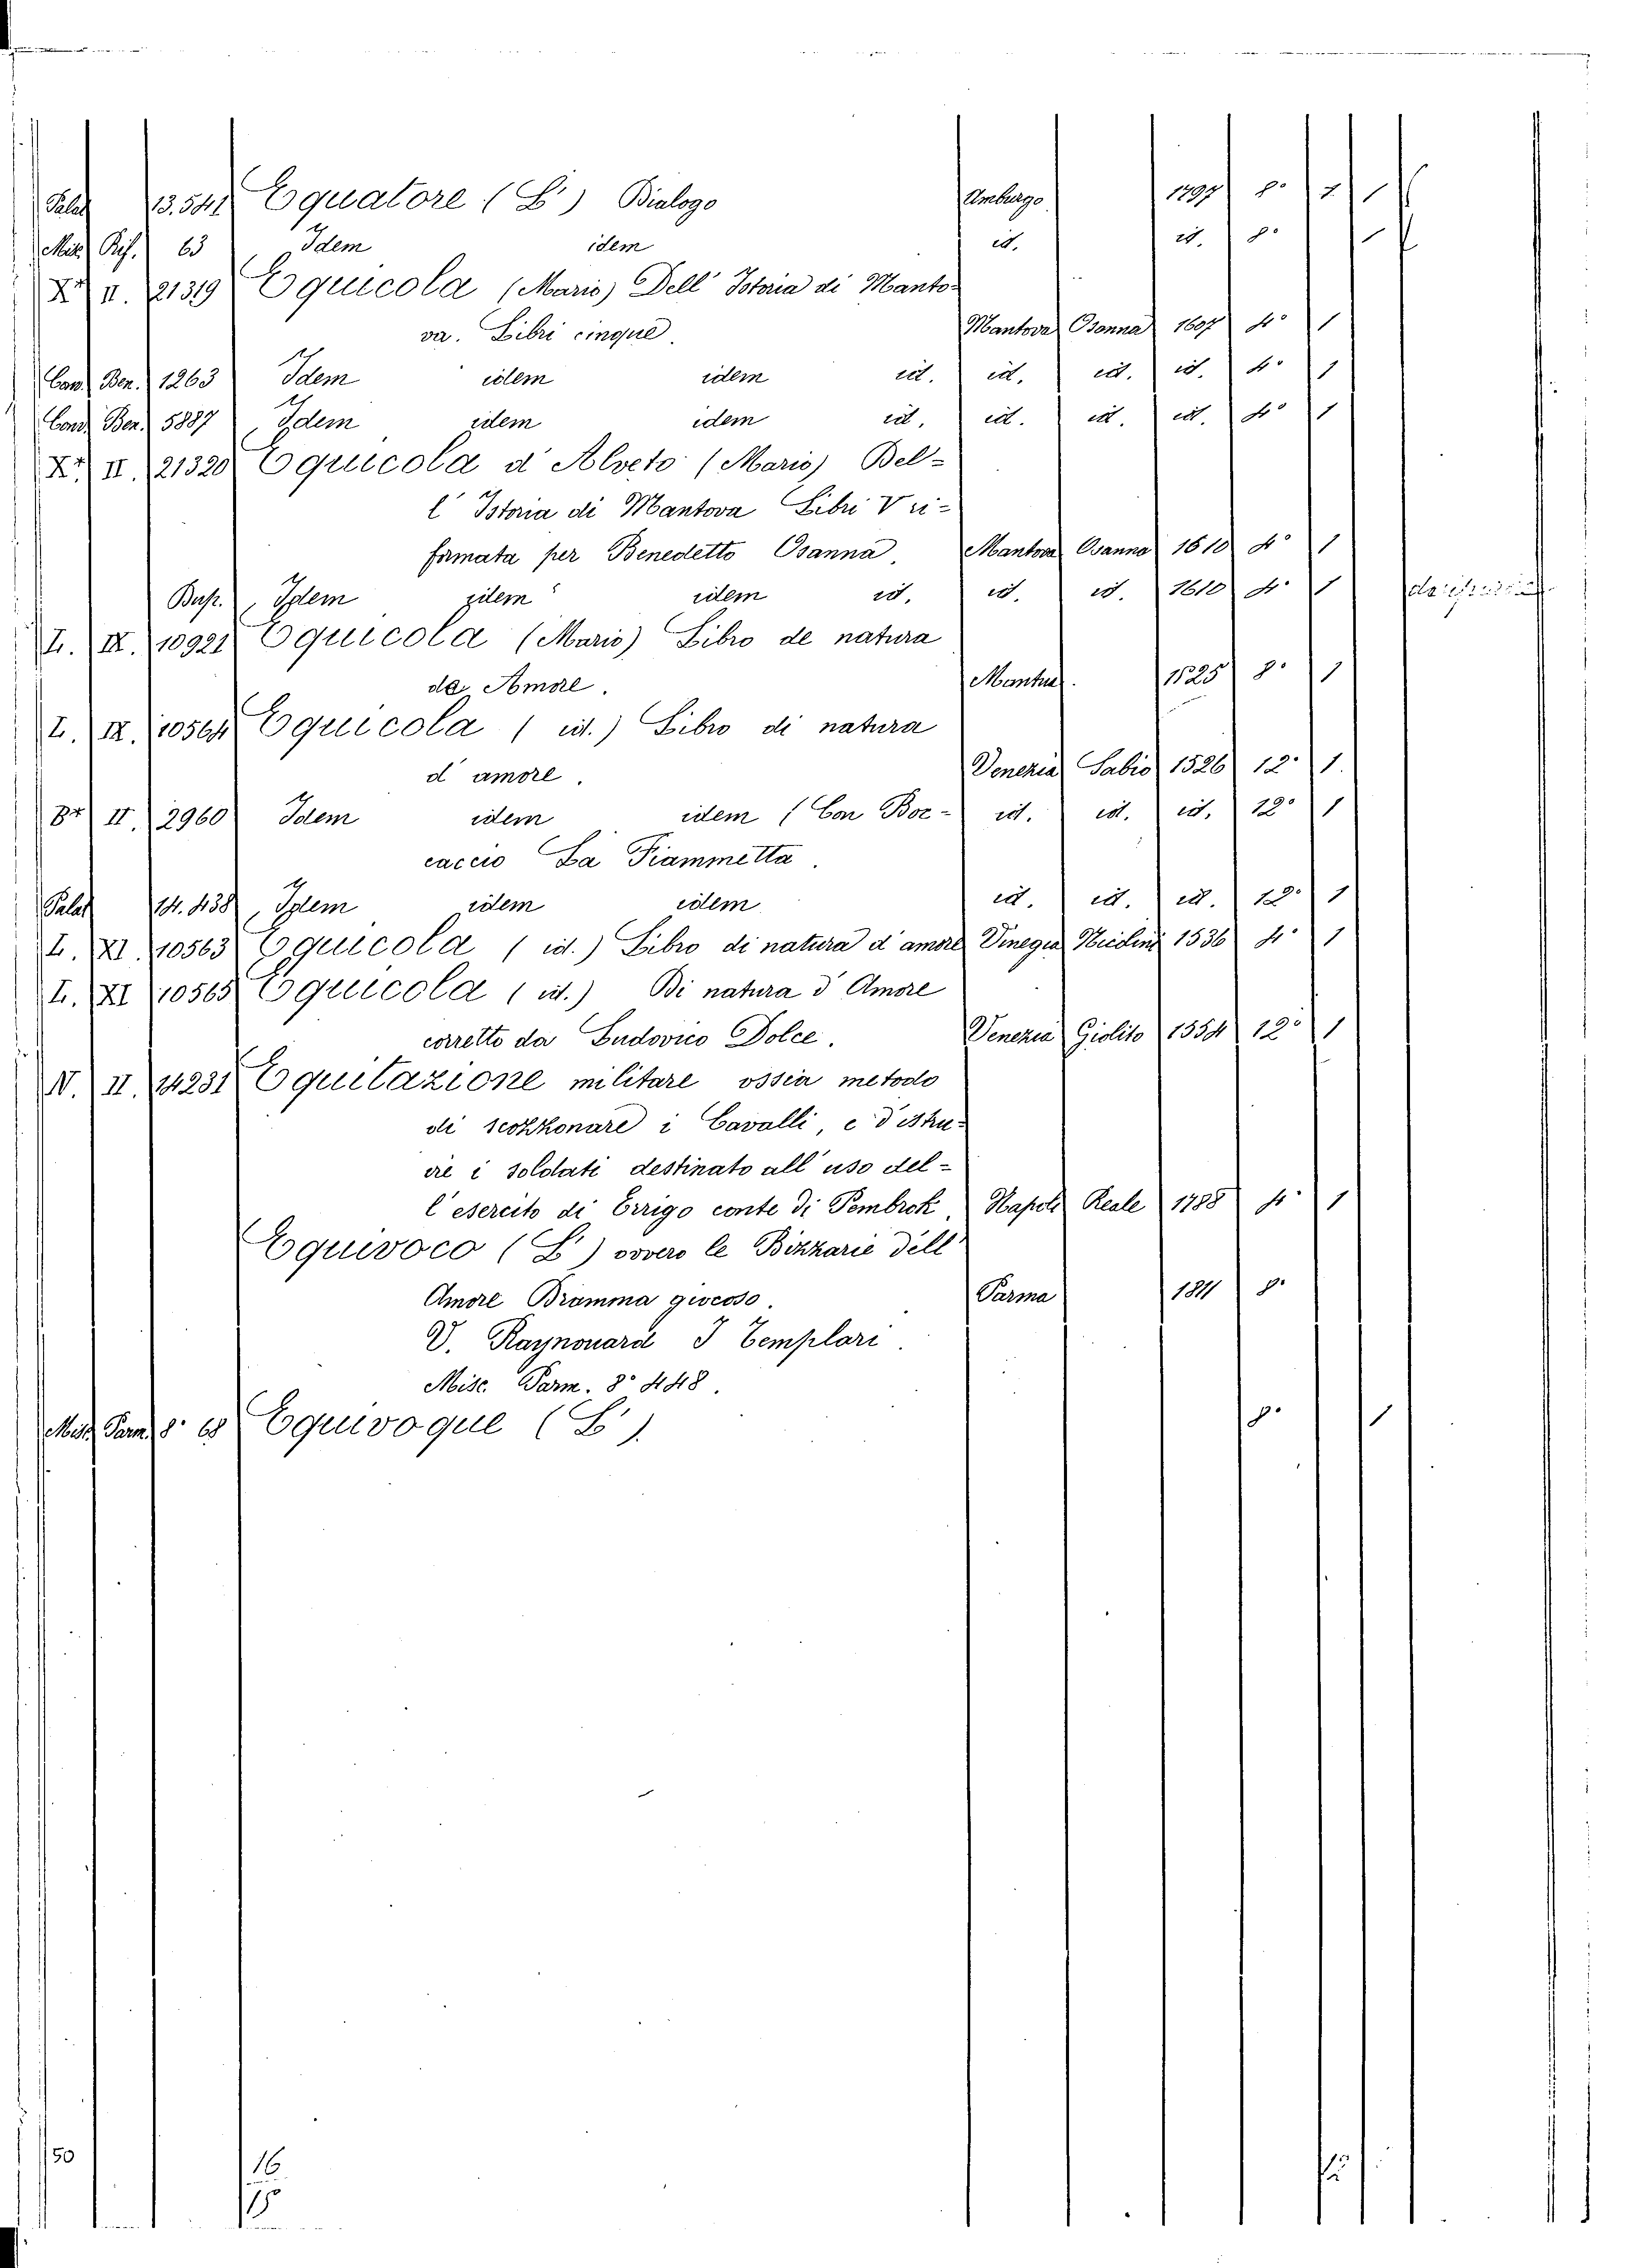 Palat 13.541 Equatore (L') Dialogo Amburgo 1797 8° 1
Misc. Rif. 63 Idem idem id. id. 8°
X.r II. 21319 Equicola (Mario) Dell' Istoria di Manto-
va. Libri cinque. Mantova Osanna 1607 4° 1
Cons. Ben. 1263 Idem idem idem id. id. id. id. 4° 1
Cons. Ben. 5887 Idem idem idem id. id. id. id. 4° 1
X.r II. 21320 Equicola d' Alveto (Mario) Del-
l' Istoria di Mantova Libri V ri-
formata per Benedetto Osanna. Mantova Osanna 1610 4° 1
Dup. Idem idem idem id. id. id. 1610 4° 1
L. IX. 10921 Equicola (Mario) Libro de natura
de Amore. Mantua. 1525 8° 1
L. IX. 10564 Equicola (id.) Libro di natura
d' amore. Venezia Sabio 1526 12° 1.
8.r II. 2960 Idem idem idem (Con Boc- id. id. id. 12° 1
caccio La Fiammetta.
Palat 14.438 Idem idem idem id. id. id. 12° 1
L. XI. 10563 Equicola (id.) Libro di natura d'amore Vinegia 1536 4° 1
L. XI 10565 Equicola (id.) Di natura d'Amore
corretto da Ludovico Dolce. Venezia Giolito 1554 12° 1
N. II. 14231 Equitazione militare ossia metodo
di scozzonare i Cavalli, e d'istru-
ire i soldati destinato all'uso del-
l'esercito di Errigo conte di Pembrok. Napoli Reale 1788 4° 1
Equivoco (L') ovvero le Bizzarie dell'
Amore Dramma giocoso. Parma 1811 8°
V. Raynouard I Templari.
Misc. Parm. 8° 448.
Misc. Parm. 8° 68 Equivoque (L'). 8° 1
50
16
15